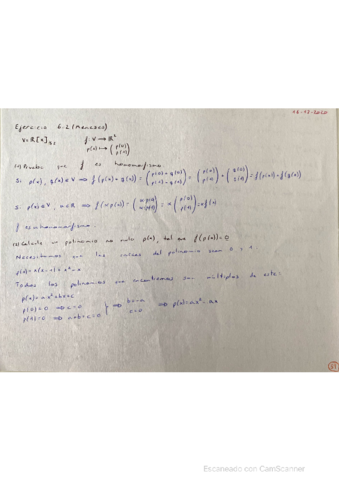 04-12-2020
Ejercicio 6.2 (
V = R[x]≤2 f: V → R²
p(x) ↦ (p(0) p(1))
(a) Probar que f es homomorfismo.
S: p(x), q(x) ∈ V ⟹ f(p(x)+q(x)) = (p(0)+q(0) p(1)+q(1)) = (p(0) p(1)) + (q(0) q(1)) = f(p(x))+f(q(x))
2. p(x) ∈ V, α ∈ R ⟹ f(α p(x)) = (α·p(0) α·p(1)) = α (p(0) p(1)) = α f
f es homomorfismo.
Calcula un polinomio no nulo p(x), tal que f(p(x)) = 0
Necesitamos que los raíces del polinomio sean 0 y 1.
p(x) = x(x-1) = x²-x
Todos los polinomios que encontremos son múltiplos de este:
p(x) = ax²+bx+c
p(0) = 0 ⟹ c=0
p(1) = 0 ⟹ a+b+c=0 } ⟹ b=-a c=0 ⟹ p(x) = ax²-ax
Escaneado con CamScanner